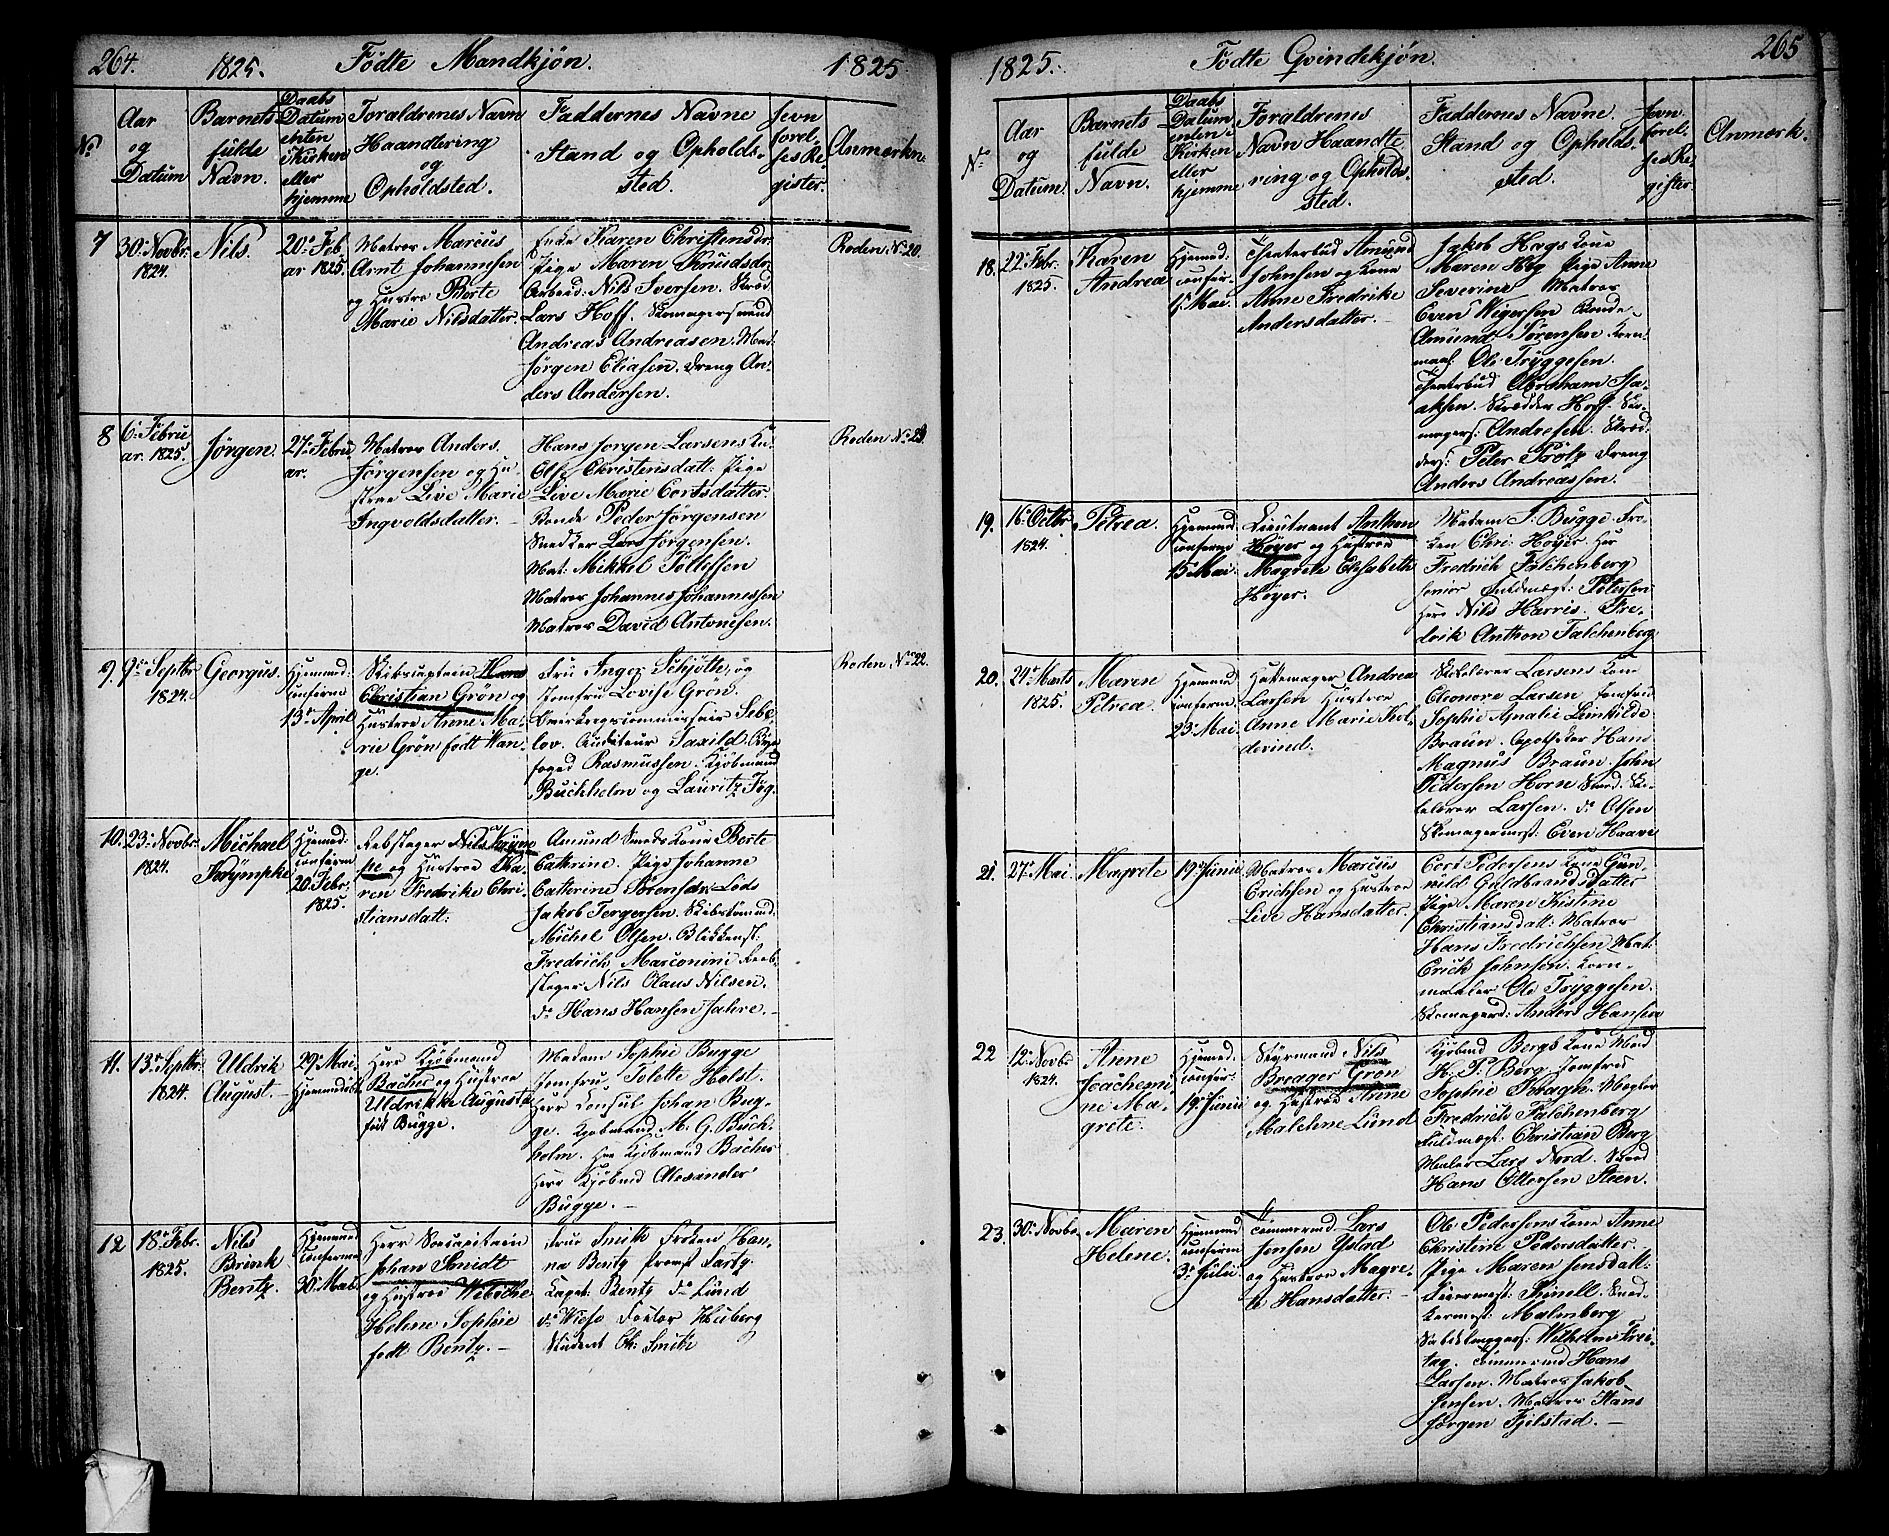 264.
1825.
Födte Mandkjön.
1825
No
Aar
og
Datum
Barnets
fulde
Navn.
Daabs
Datum
enten
i Kirken
eller
hjemme
Foraldrenes Navn
Haandtering
og
Opholdsted.
Faddernes Navne
Stand og Opholds-
sted.
Jevn
forel-
ses Re
gister.
Anmerkn.
7
30. Novbr.
1824.
Nils.
20. Feb
ar 1825.
Matros Marcus
Arnt Johannesen
og Hustro Berte
Marie Nilsdatter.
Enke Karen Christensdr.
Pige Maren Knudsdr.
Arbeid: Nils Iversen. Skræd
Lars Hoff. Skomagersvend
Andreas Andreasen. Mat.
Jörgen Eliasen. Dreng An-
ders Andersen.
Roden No 20.
8
6. Febru
ar. 1825.
Jörgen.
27. Febru
ar.
Matros Anders
Jörgensen og Hu-
stroe Live Marie
Ingvoldsdatter.
Hans Jorgen Larsens Ko
Else Christensdatt: Pige
Live Marie Cortsdatter.
Bonde Peder Jörgensen
Snedker Lars Jörgensen.
Mat: Mikkel Tollefsen
Matros Johannes Johannessen
Matros David Antonesen.
9.
9. Septbr
1824.
Georgus.
Hjemmed:
confirm
13. April
Skibscaptein Hans
Christian Grön og
Hustroe Anne Ma-
rie Grön födt Wan-
ge.
Fru Anger Schjötte, og
Jomfru Lovise Gron.
Sebe
lov. Auditeur Saxild. Bye
foged Rasmussen. Kjöbmand
Buchholm og Lauritz Fog.
Roden No 22.
10.
23. Novbr
1824.
Michael
Köympke
Hjemmed:
confirm
20. Febr.
1825.
Rebslager Nils Köym
pke og Hustroe Ka-
ren Fredrike Chri-
stiansdatt:
Amund Smeds Kone Berte
Cathrine. Pige Johanne
Cathrine Sörensdr. Lods
Jakob Torgersen. Skibstömmd.
Michel Olsen. Blikkensl.
Fredrich Marconini Reeb-
slager Nils Olaus Nilsen.
do Hans Hansen Jahre.
11.
13. Septbr
1824.
Uldrik
August.
29. Mai
Hjemmedöbt
Herr Kjöbmand
Bacher og Hustroe
Uldrikke Augusta
föd Bugge.
Madam Sophie Bugge
Jomfru Tolette Holst.
Herr Consul Johan Bug-
ge. Kjöbmand M. G. Buch-
holm. Herr Kjöbmand Bacher
Herr Kjöbmd Alexander
Bugge.
12
18. Febr.
1825.
Nils
Brink
Bentz
Hjemmed
confirme
30. Mai
Herr Söecaptein
Johan Smidt
og Hustroe Wibeche
Helene Sophie
födt Bentz.
Frue Smith Froken Han-
na Bentz Provst Lartz.
Capt: Bentz do Lund
do Wiese Doctor Heiberg
Student Ch: Smith
1825.
Födte Qvindekjön.
265
No
Aar
og
Datum.
Barnets
fulde
Navn.
Daabs
Datum
enten i
Kirken
eller
hjemme
Foraldrenes
Navn Haandte
ring og Opholds-
sted.
Faddernes Navne.
Stand og Opholds.
sted.
Jevn
forel-
ses Re
gister.
Anmærk.
18.
22. Febr.
1825.
Karen
Andrea
Hjemmed:
confir-
15. Mai.
Amund
Johnsen og Kone
Anne Fredrike
Andersdatter.
Jakob Hags Kone
Maren Hög Pige Anne
Severine Matros
Even Wigersen Bonde
Amund Sörensen Korn-
maal: Ole Tryggesen.
Abraham Isa-
aksen. Skrædder Hoff. Sko-
magers: Andresen. Skræd
ders: Peter Protz Dreng
Anders Andreassen.
19.
16. Octbr
1824.
Petrea.
Hjemmed
confirm
15. Mai.
Lieutnant Anthon
Höyer og Hustroe
Magrete Elisabeth
Höyer.
Madam S. Bugge. Frö-
ken Chri: Höyer. Her
Fredrich Falchenberg
senior Fuldmægt: Petersen
Herr Nils Harris. Fre-
drik Anthon Falchenberg
20.
24. Marts
1825.
Maren
Petrea
Hjemmed
confirm.
23. Mai.
Hattemager Andrea
Larsen Hustroe
Anne Marie Kol-
devind.
Skolelærer Larsens Kone
Eleonore Larsen Jomfrue
Sophie Amalie Leinkilde
Braun. Apotheker Hans
Magnus Braun. John
Pedersen Horn Sned. Sko-
lelærer Larsen. do Olsen
Skomagermest. Even Haavi
21.
27. Mai.
Magrete
19. Junii
Matros Marcus
Erichsen og Hustroe
Live Hansdatter.
Cort Pedersens Kone Gun-
nild Guldbrandsdatter
Pige Maren Kistine
Christiansdatt: Matros
Hans Fredrichsen Mat:
Erick Johnsen. Korn-
maaler Ole Tryggesen.
Skomagerd: Anders Hansen
22
12. Novbr
1824.
Anne
Joachemi-
ne Ma-
grete.
Hjemmed
confir-
19. Junii
Styrmand Nils
Breager Grön
og Hustroe Anne
Malehne Lund
Kjöbmd Bergs Kone Mad
H. P. Berg. Jomfrue
Sophie Kragh. Megler
Fredrich Falchenberg
Fuldmægt: Christian Berg
Maler Lars Nord. Skræd
Hans Ottersen Steen.
23.
30. Novbr
Maren
Helene.
Hjemmed
confirm
3. Julii
Tömmermd Lars
Jensen Ystad
og Hustroe Magre-
te Hansdatter.
Ole Pedersens Kone Anne
Christine Pedersdatter.
Pige Maren Jensdatt:
Finell. Sned-
kermest: Malmberg
Wilhelm Frei-
tag. Tömmermd Hans
Larsen. Matros Jakob
Jensen. Matros Hans
Jörgen Fjelstad.